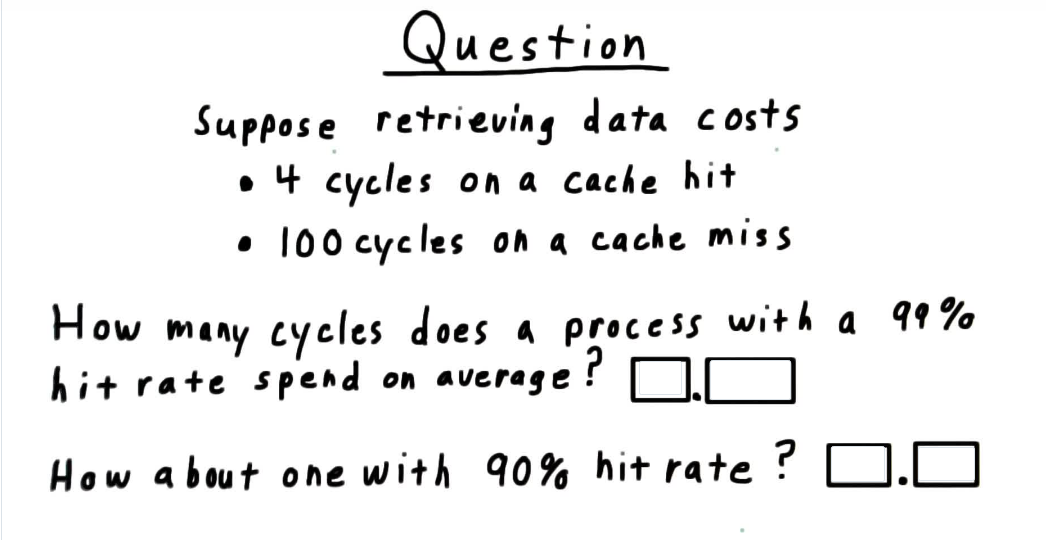 Question
Suppose retrieving data costs
• 4 cycles on a cache hit
• 100 cycles on a cache miss
How many cycles does a process with a 99%
hit rate spend on average? .
How about one with 90% hit rate? .